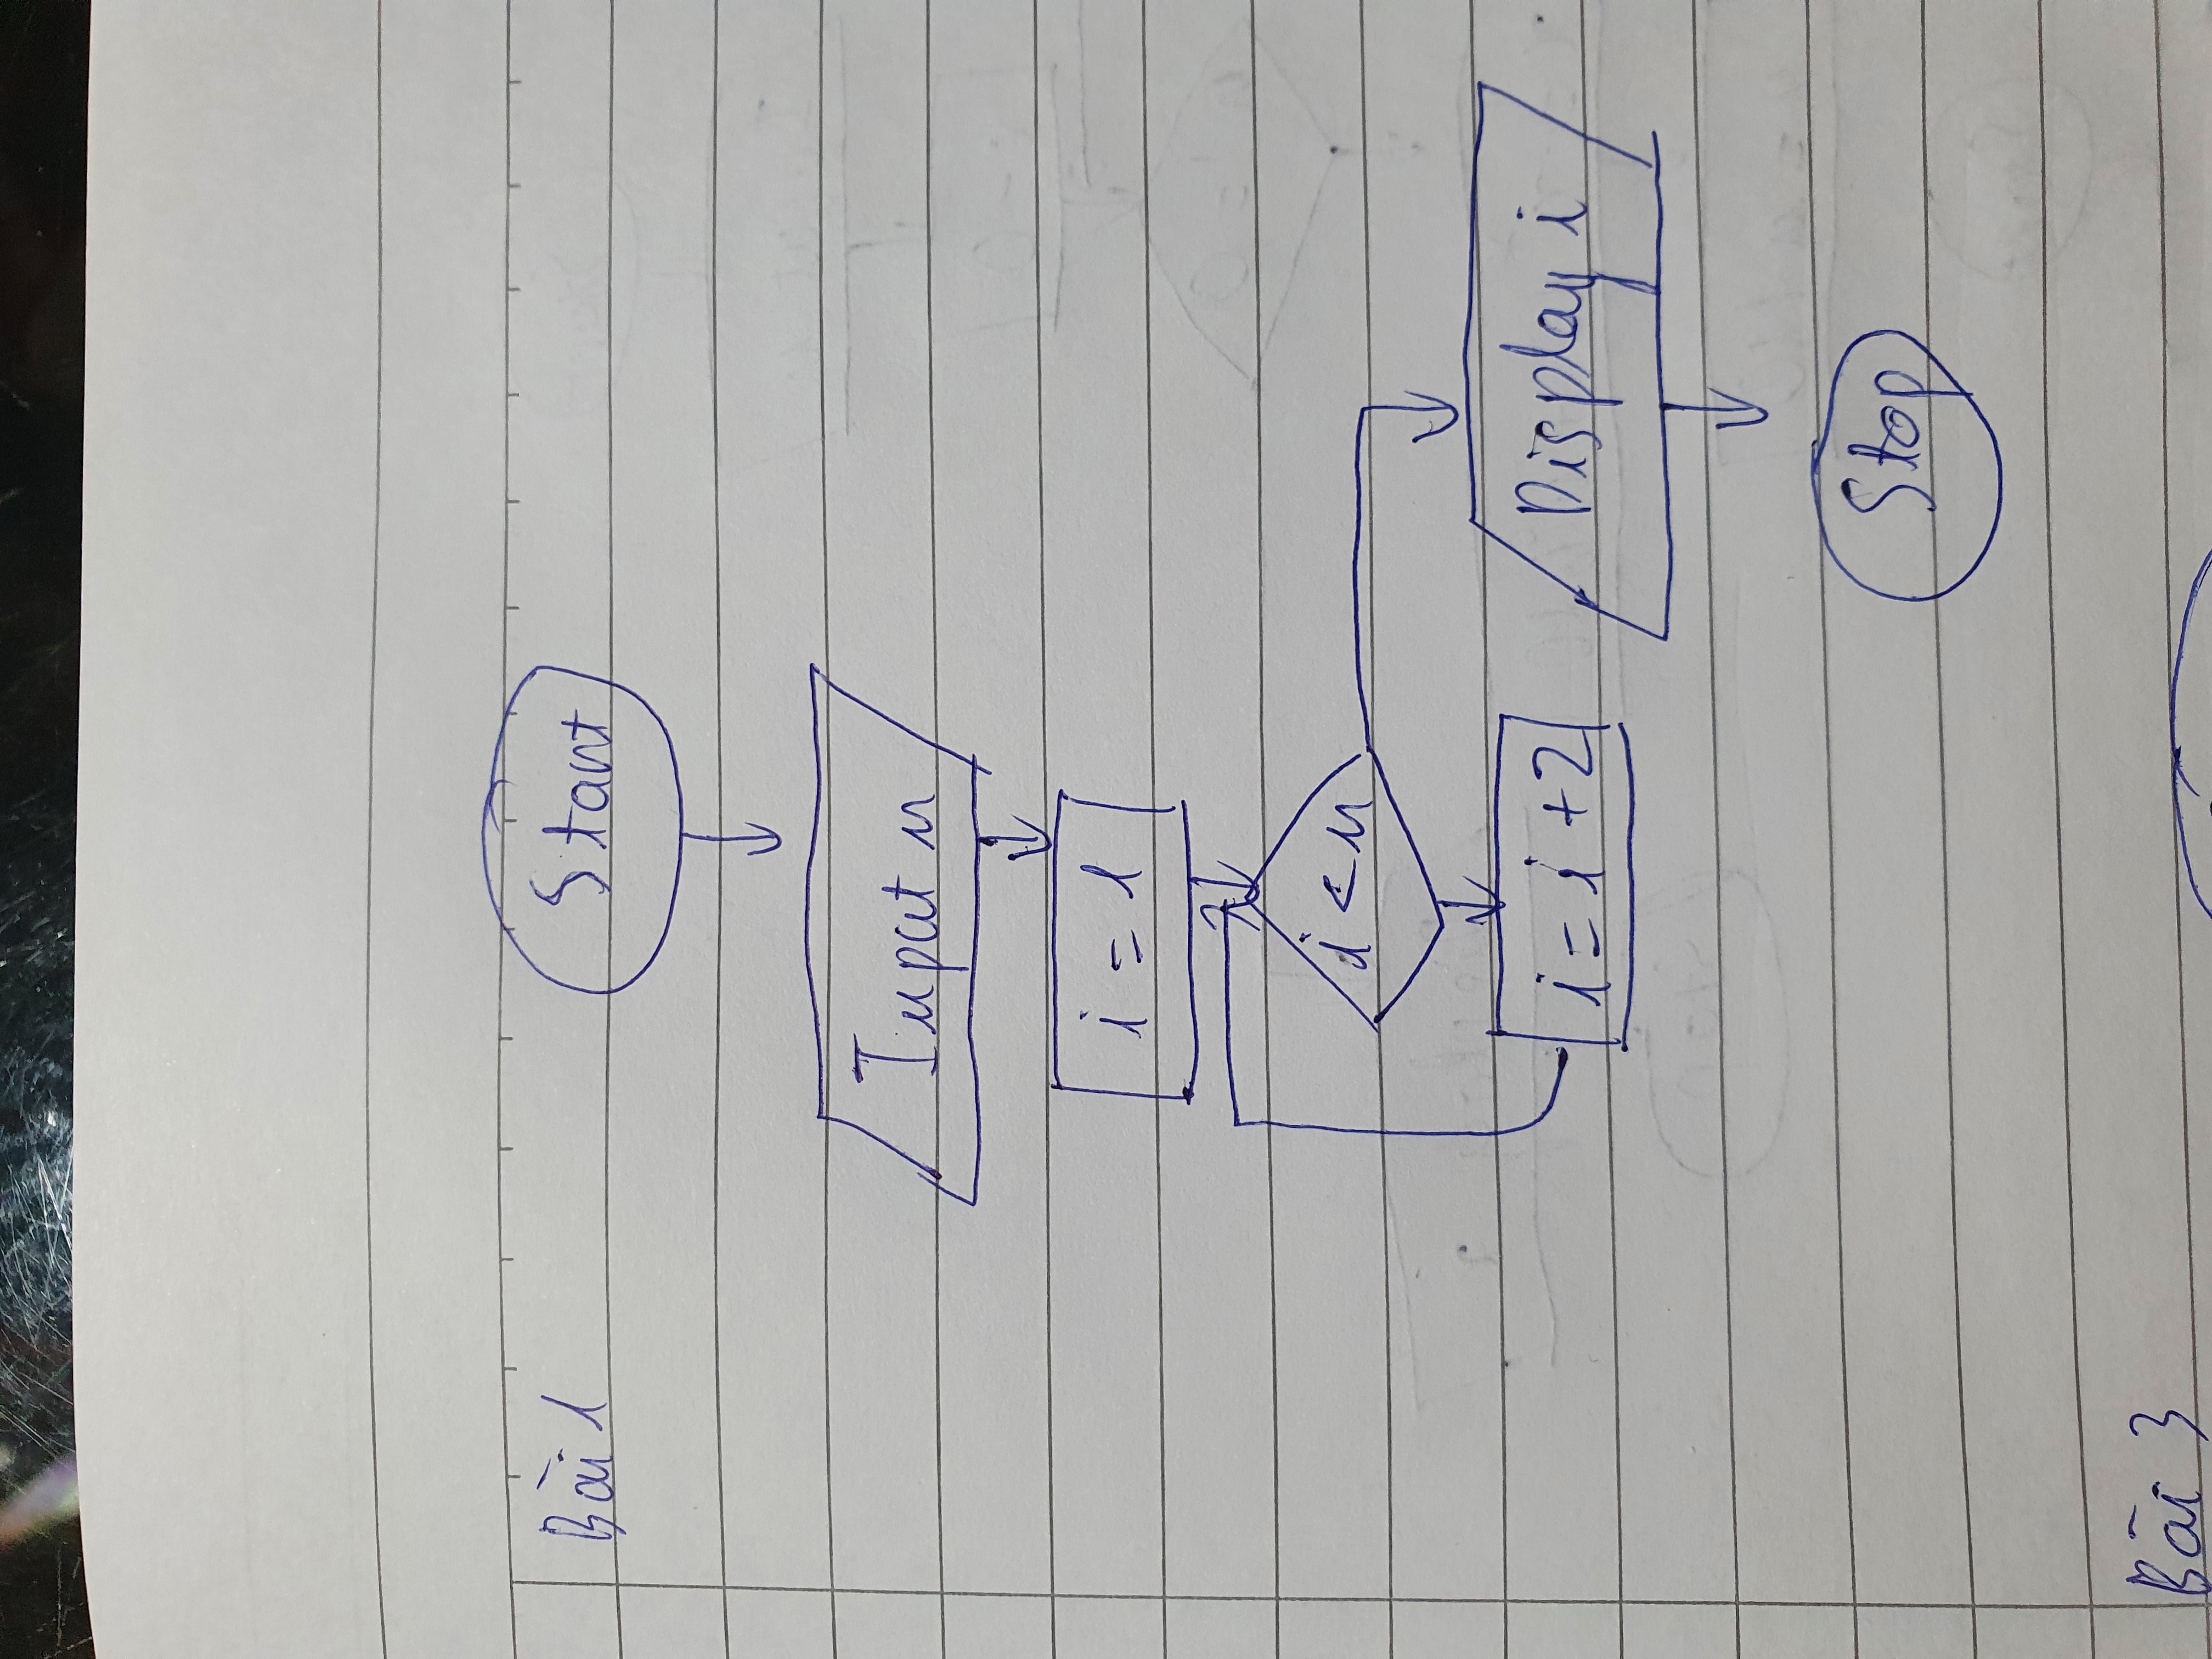 Bài 1
Start
Input n
i = 1
i < n
i = i + 2
Display i
Stop
Bài 3